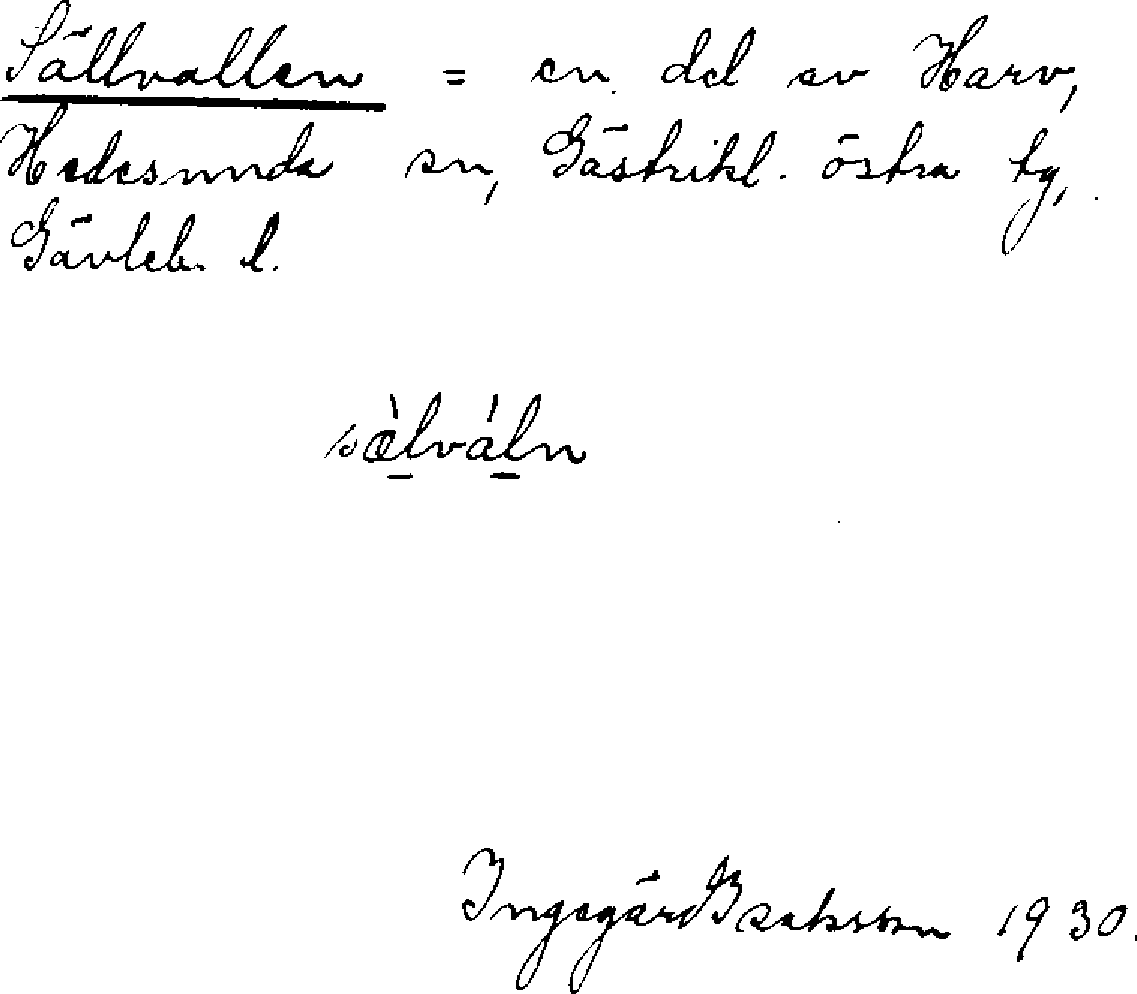 Sällvallen = en del av Harv,
Hedesunda sn, Gästrikl. östra tg,
Gävleb. l.
sæ̀lváln
Ingegärd Isaksson 1930.